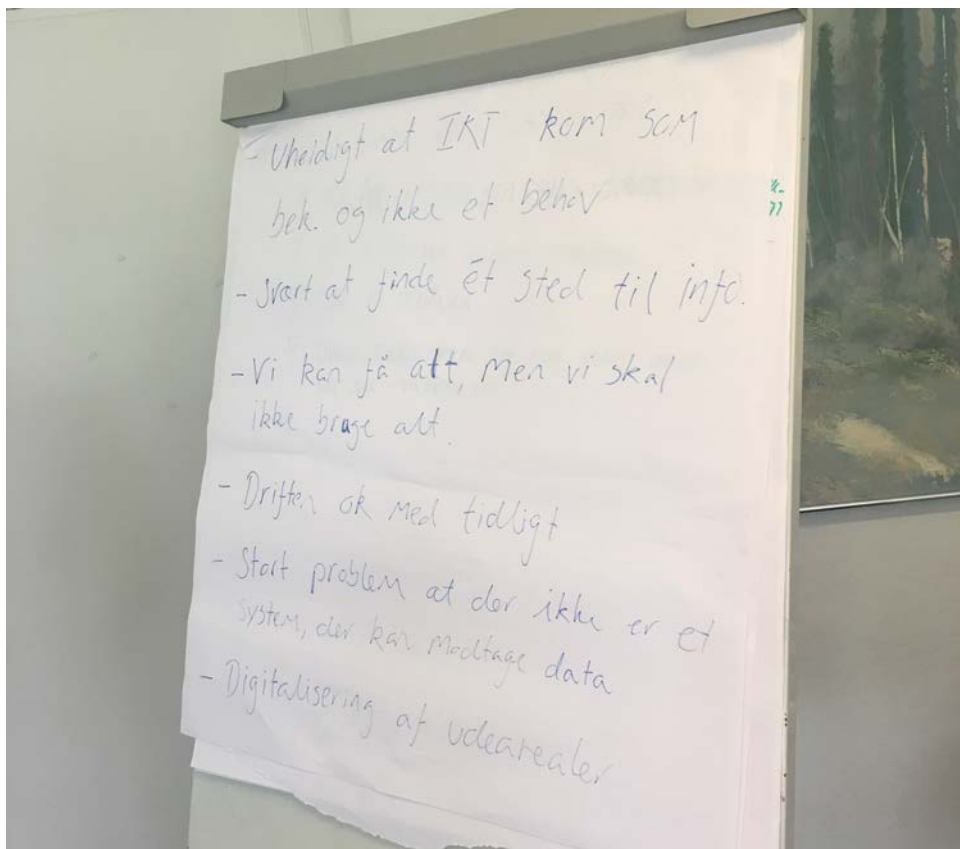 - Uheldigt at IKT kom som
bek. og ikke et behov
- Svært at finde ét sted til info.
- Vi kan få alt, men vi skal
ikke bruge alt.
- Driften ok med tidligt
- Stort problem at der ikke er et
system, der kan modtage data
- Digitalisering af udearealer